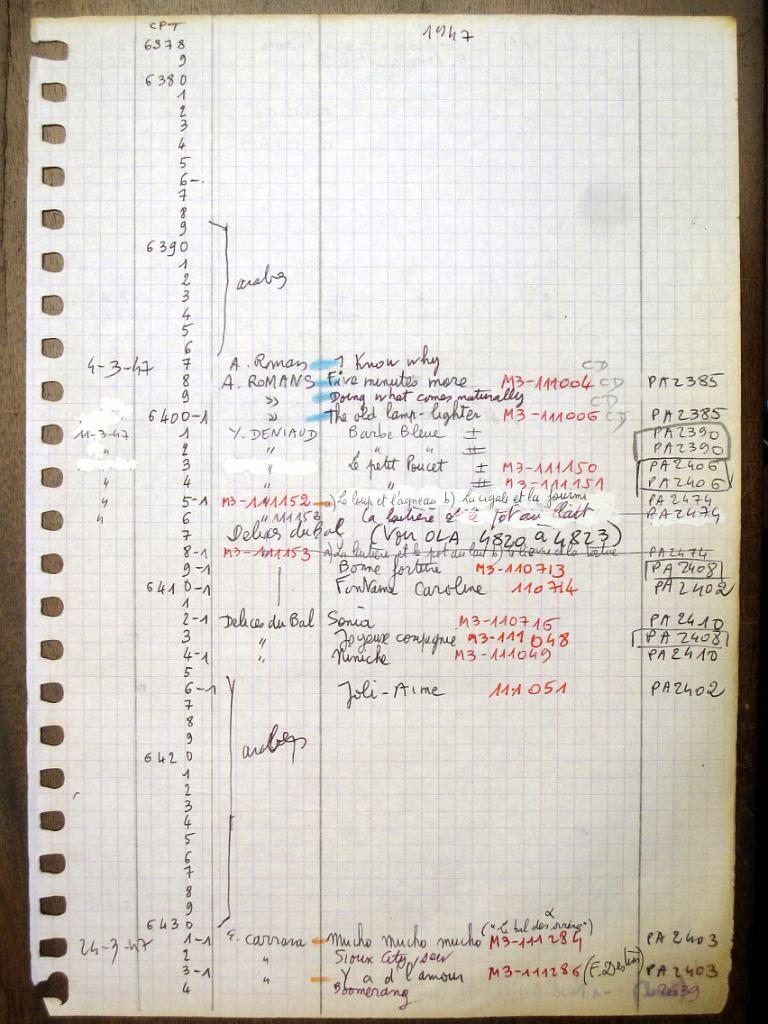 CPT
1947
6378
9
6380
1
2
3
4
5
6-.
7
8
9
6390
1
2
arabes
3
4
5
6
4-3-47 7 A. Romans I Know why CD
8 A. ROMANS Five minutes more M3-111004 CD PA2385
9 " Doing what comes naturally CD
6400-1 " The old lamp-lighter M3-111006 CD PA2385
11-3-47 1 Y. DENIAUD Barbe Bleue I PA2390
" 2 " " " II PA2390
3 Le petit Poucet I M3-111150 PA2406
" 4 " II M3-111151 PA2406
" 5-1 M3-111152 a) Le loup et l'agneau b) La cigale et la fourmi PA2474
" 6 " 111153 La laitière et le pot au lait PA2474
7 Delices du bal (Voir OLA 4820 à 4823)
8-1 M3-111153 a) La laitière et le pot au lait b) le lièvre et la tortue PA2474
9-1 Bonne fortune M3-110713 PA2408
6410-1 Fontaine Caroline 110714 PA2402
1
2-1 Delices du Bal Sonia M3-110716 PA2410
3 " Joyeux compagnie M3-111048 PA2408
4-1 " Niniche M3-111049 PA2410
5
6-1 Joli-Aime 111051 PA2402
7
8
9
arabes
6420
1
2
3
4
5
6
7
8
9
6430
24-3-47 1-1 E. Carrara mucho mucho mucho ("le bal des sirènes") M3-111284 PA2403
2 " Sioux City
3-1 " Y a d'l'amour M3-111286 PA2403
4 Boomerang 2639